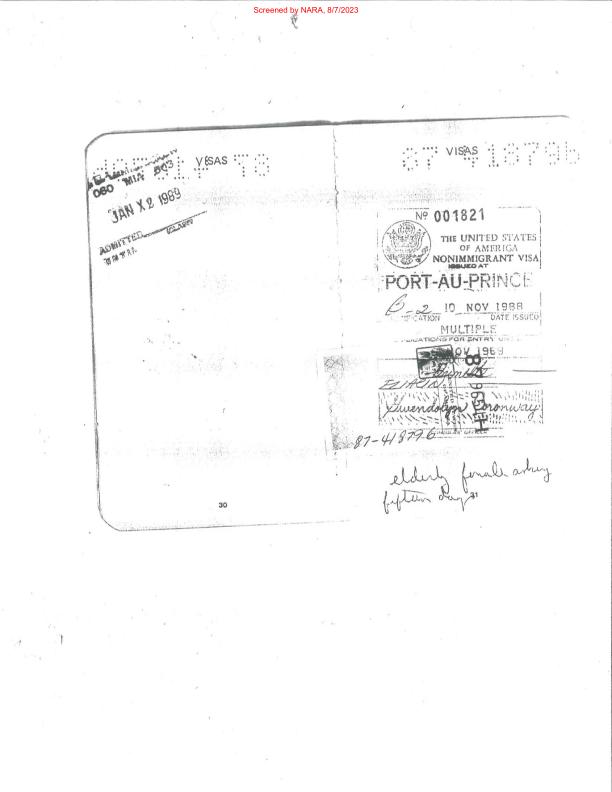 Screened by NARA, 8/7/2023
VISAS
080 MIA 503
JAN X 2 1989
ADMITTED
CLASS
UNTIL
30
VISAS
87 418796
Nº 001821
THE UNITED STATES
OF AMERICA
NONIMMIGRANT VISA
ISSUED AT
PORT-AU-PRINCE
B-2 10 NOV 1988
DATE ISSUED
MULTIPLE
APPLICATIONS FOR ENTRY UNTIL
NOV 1989
Gwendolyn Coronway
87-418796
elderly female asking
fifteen days
31